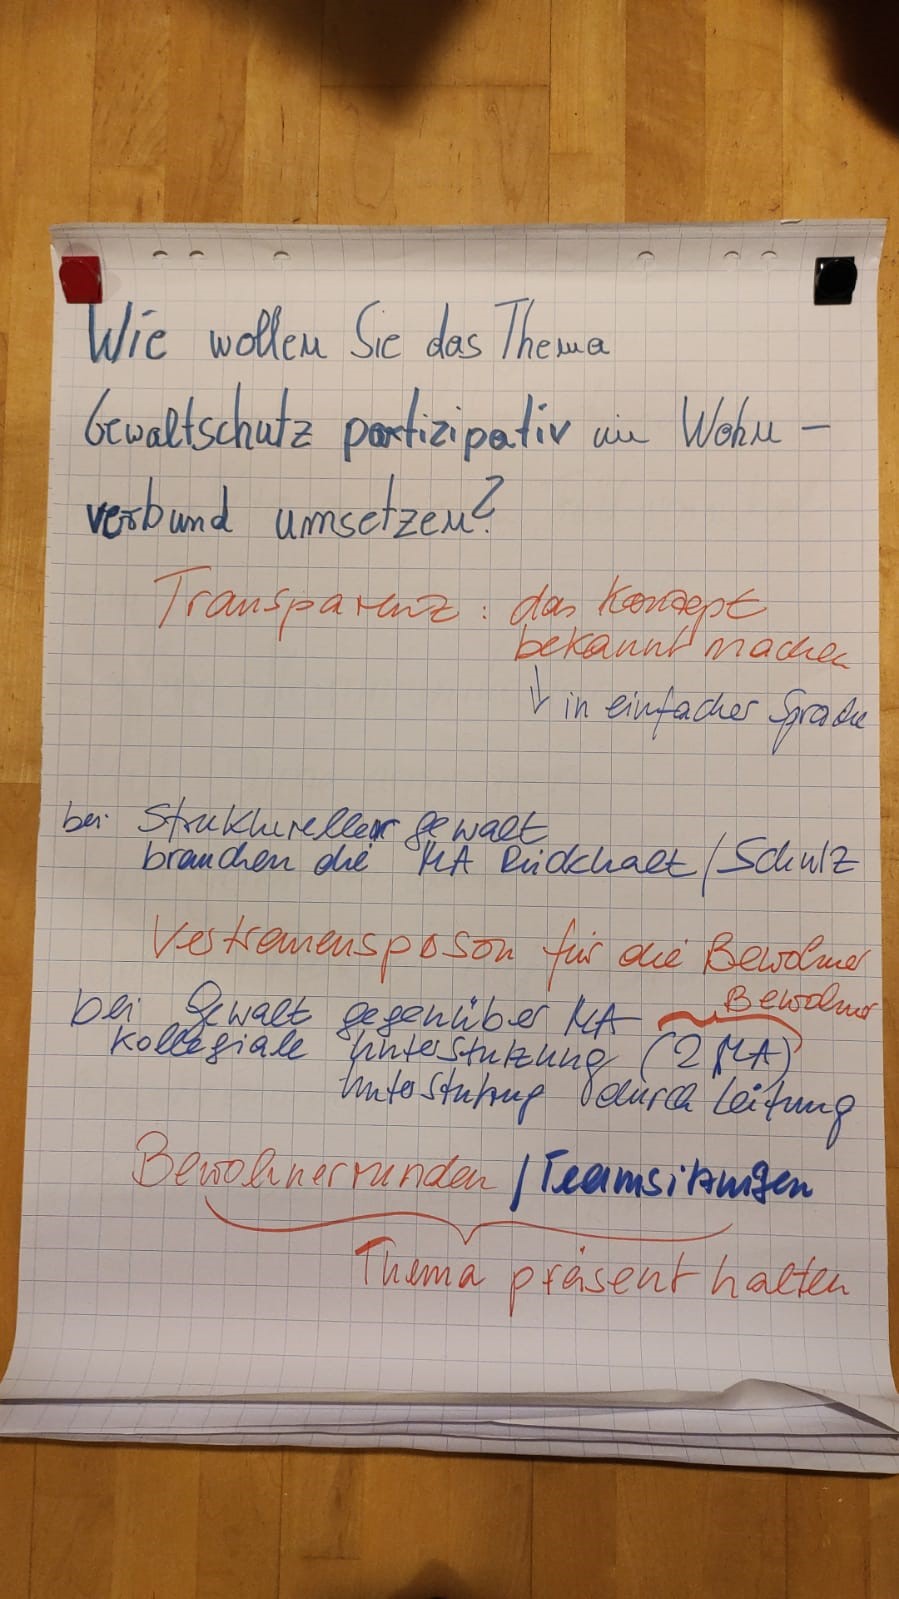 Wie wollen Sie das Thema
Gewaltschutz partizipativ im Wohn-
verbund umsetzen?
Transparenz: das Konzept
bekannt machen
↓ in einfacher Sprache
bei struktureller Gewalt
brauchen die MA Rückhalt/Schutz
Vertrauensperson für die Bewohner
Bewohner
bei Gewalt gegenüber MA
Kollegiale Unterstützung (2 MA)
Unterstützung durch Leitung
Bewohnerrunden / Teamsitzungen
Thema präsent halten